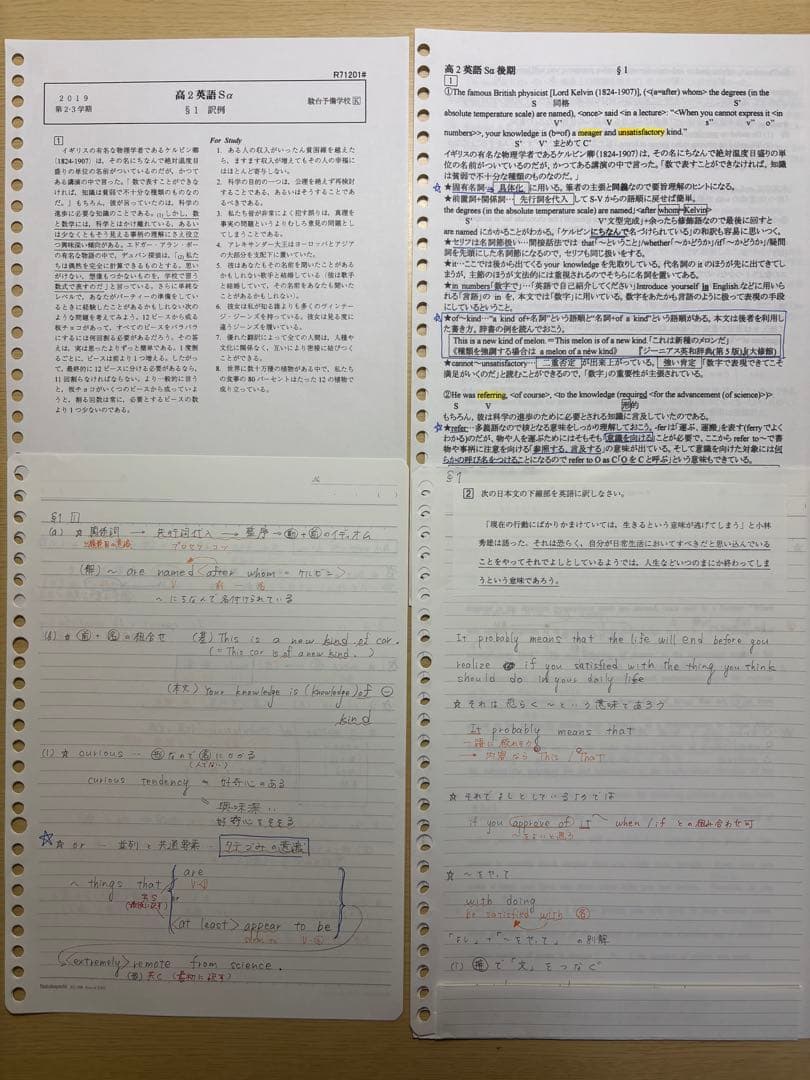 R71201#
2019
第2・3学期
高2英語Sα
§1 訳例
駿台予備学校 K
1
イギリスの有名な物理学者であるケルビン卿
(1824-1907)は、その名にちなんで絶対温度目
盛りの単位の名前がついているのだが、かつて
ある講演の中で言った。「数で表すことができな
ければ、知識は貧弱で不十分な種類のものなの
だ。」もちろん、彼が言っていたのは、科学の
進歩に必要な知識のことである。(1)しかし、数
と数学には、科学とはかけ離れている、あるい
は少なくともそう見える事柄の理解にさえ役立
つ興味深い傾向がある。エドガー・アラン・ポー
の有名な物語の中で、デュパン探偵は、「(2)私
たちは偶然を完全に計算できるものとする。思い
がけない、想像もつかないものを、学校で言う
数式で表すのだ」と言っている。さらに単純な
レベルで、あなたがパーティーの準備をしてい
るときに経験したことがあるかもしれない次の
ような問題を考えてみよう。12ピースから成る
板チョコがあって、すべてのピースをバラバラ
にするには何回割る必要があるだろう。その答
えは、実は思ったよりずっと簡単である。1度割
るごとに、ピースは前より1つ増える。したがっ
て、最終的に12ピースに分ける必要があるなら、
11回割らなければならない。より一般的に言う
と、板チョコがいくつのピースから成っていよ
うと、割る回数は常に、必要とするピースの数
より1つ少ないのである。
For Study
1. ある人の収入がいったん貧困線を越えた
ら、ますます収入が増えてもその人の幸福に
はほとんど寄与しない。
2. 科学の目的の一つは、公理を絶えず再検討
することである、あるいはそうすることであ
るべきである。
3. 私たち皆が非常によく犯す誤りは、真理を
事実の問題というよりむしろ意見の問題とし
てしまうことである。
4. アレキサンダー大王はヨーロッパとアジア
の大部分を支配下に置いていた。
5. 彼はあなたもその名前を聞いたことがある
かもしれない歌手と結婚している(彼は歌手
と結婚していて、その名前をあなたも聞いた
ことがあるかもしれない)。
6. 彼女は私が知る誰よりも多くのヴィンテー
ジ・ジーンズを持っている。彼女は見る度に
違うジーンズを履いている。
7. 優れた翻訳によって全ての人間は、人種や
文化に関係なく、互いにより密接に結びつく
ことができる。
8. 世界に数十万種の植物がある中で、私たち
の食事の80パーセントはたった12の植物で
成り立っている。
高2英語Sα 後期 §1
1
①The famous British physicist [Lord Kelvin (1824-1907)], (<(a=after) whom> the degrees (in the
S 同格 S'
absolute temperature scale) are named), <once> said <in a lecture>: “<When you cannot express it <in
V' V s'' v'' o''
numbers>>, your knowledge is (b=of) a meager and unsatisfactory kind.”
S' V' まとめて C'
イギリスの有名な物理学者であるケルビン卿(1824-1907)は、その名にちなんで絶対温度目盛りの単
位の名前がついているのだが、かつてある講演の中で言った。「数で表すことができなければ、知識
は貧弱で不十分な種類のものなのだ。」
★固有名詞…具体化に用いる。筆者の主張と同義なので要旨理解のヒントになる。
★前置詞+関係詞…先行詞を代入してS-Vからの語順に戻せば簡単。
the degrees (in the absolute temperature scale) are named <after whom=Kelvin>
S V'文型完成」+余ったら修飾語なので最後に回すと
are namedにかかることがわかる。「ケルビンにちなんで名づけられている」の和訳も容易に思いつく。
★セリフは名詞節扱い…間接話法では that「~ということ」/whether「~かどうか」/if「~かどうか」/疑問
詞を先頭にした名詞節になるので、セリフも同じ扱いをする。
★it…ここでは後から出てくる your knowledge を先取りしている。代名詞の it のほうが先に出てきてし
まうが、主節のほうが文法的には重視されるのでそちらに名詞を置いてある。
★in numbers「数字で」…「英語で自己紹介してください Introduce yourself in English.などに用いられ
る「言語」の in を、本文では「数字」に用いている。数字をあたかも言語のように扱って表現の手段に
しているということ。
★of~kind…“a kind of+名詞”という語順と“名詞+of a kind”という語順がある。本文は後者を利用し
た書き方。辞書の例を読んでおこう。
This is a new kind of melon.=This melon is of a new kind.「これは新種のメロンだ」
《種類を強調する場合は a melon of a new kind》 『ジーニアス英和辞典(第5版)』(大修館)
★cannot~unsatisfactory…二重否定が出来上がっている。強い肯定「数字で表現できてこそ
満足がいくのだ」と読むことができるので、「数字」の重要性が主張されている。
②He was referring, <of course>, <to the knowledge (required <for the advancement (of science)>)>.
S V 形的
もちろん、彼は科学の進歩のために必要とされる知識に言及していたのである。
★refer…多義語なので核となる意味をしっかり理解しておこう。-ferは「運ぶ、運搬」を表す(ferryでよく
わかる)のだが、物や人を運ぶためにはそもそも「意識を向ける」ことが必要で、ここから refer to~で書
物や事柄に注意を向ける「参照する、言及する」の意味が出ている。そして意識を向けた対象には何
らかの呼び名をつけることになるので refer to O as C「OをCと呼ぶ」という意味もできている。
§1 1
(a) ☆ 関係詞 → 先行詞代入 → 整序→動+前のイディオム
プロセス・コツ
(解) ~ are named <after whom = ケルビン>
V 前 名
~にちなんで名付けられている
(b) ☆ 前+名の組合せ (基) This is a new kind of car.
(= This car is of a new kind.)
(本文) Your knowledge is (knowledge) of ⊖
kind
(1) ☆ curious … 形なので名にかかる
(人でない)
curious tendency = 好奇心のある
興味深い
好奇心をそそる
☆☆ or … 並列と共通要素… タテヅみの意識
~ things that are
V-①
共S
or
<at least> appear to be
seem to V-②
<extremely> remote from science.
(否) 共C (最初に訳す)
§1
2 次の日本文の下線部を英語に訳しなさい。
「現在の行動にばかりかまけていては、生きるという意味が逃げてしまう」と小林
秀雄は語った。それは恐らく、自分が日常生活においてすべきだと思い込んでいる
ことをやってそれでよしとしているようでは、人生などいつのまにか終わってしま
うという意味であろう。
It probably means that the life will end before you
realize if you satisfied with the thing you think
should do in your daily life
☆ それは恐らく~という意味であろう
It probably means that
→ 内容なら This / That
☆ それでよしとしているようでは
if you (approve of) it when / if との組み合わせ可
~をよいと思う
☆ ~をやって
with doing
be satisfied with 名
「よし」+「~をやって」の別解
(i) 接で「文」をつなぐ